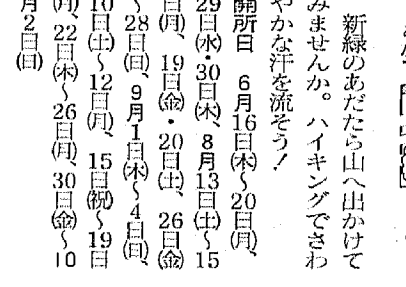 新緑のあだたら山へ出かけて
みませんか。ハイキングでさわ
やかな汗を流そう！
開所日　6月16日㈭〜20日㈪、
29日㈬・30日㈭、8月13日㈯〜15
日㈪、19日㈮・20日㈯、26日㈮
〜28日㈰、9月1日㈭〜4日㈰、
10日㈯〜12日㈪、15日㈷〜19
㈪、22日㈭〜26日㈪、30日㈮〜10
月2日㈰